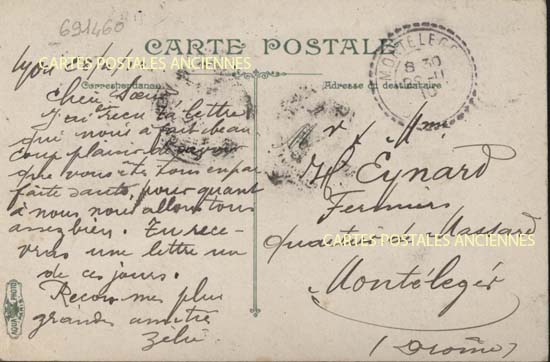 691460
CARTE POSTALE
CARTES POSTALES ANCIENNES
Correspondance
Adresse du destinataire
MONTÉLÉGER
8 30
Lyon
Chère Sœur
J'ai reçu ta lettre
qui nous a fait beau
coup plaisir de savoir
que vous êtes tous en par
faite santé, pour quant
à nous nous allons tous
assez bien. Tu rece-
vras une lettre un
de ces jours.
Reçois mes plus
grandes amitiés
Zélie
M Eynard
Fermiers
quartier de Massard
CARTES POSTALES ANCIENNES
Montéléger
(Drôme)